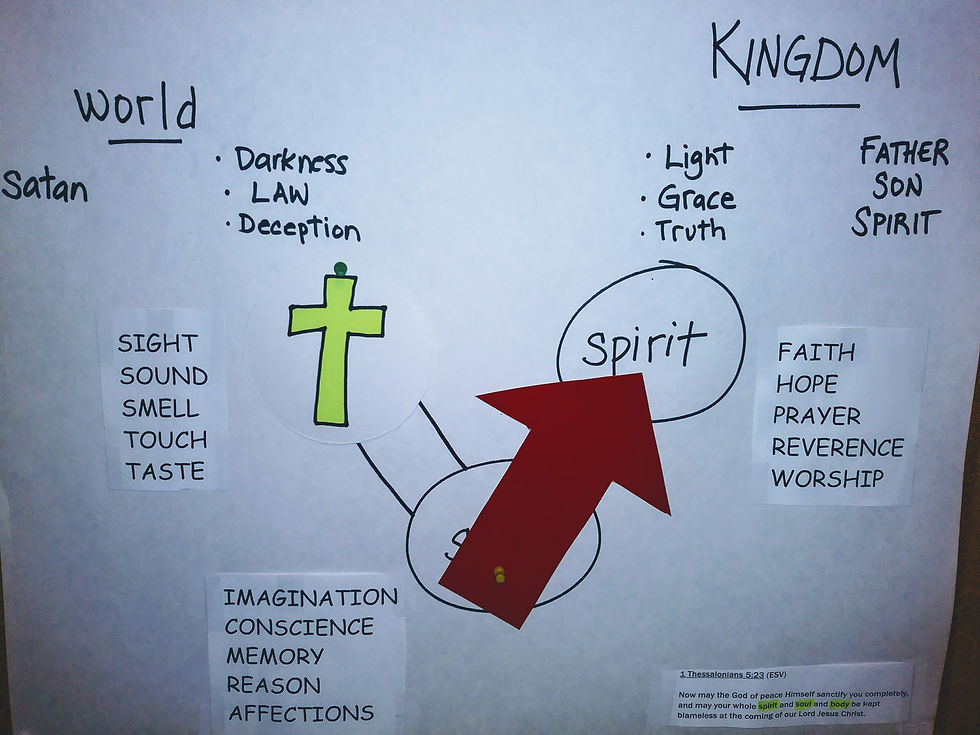 World
KINGDOM
Satan
• Darkness
• LAW
• Deception
• Light
• Grace
• Truth
FATHER
SON
SPIRIT
SIGHT
SOUND
SMELL
TOUCH
TASTE
spirit
FAITH
HOPE
PRAYER
REVERENCE
WORSHIP
IMAGINATION
CONSCIENCE
MEMORY
REASON
AFFECTIONS
1 Thessalonians 5:23 (ESV)
Now may the God of peace Himself sanctify you completely,
and may your whole spirit and soul and body be kept
blameless at the coming of our Lord Jesus Christ.